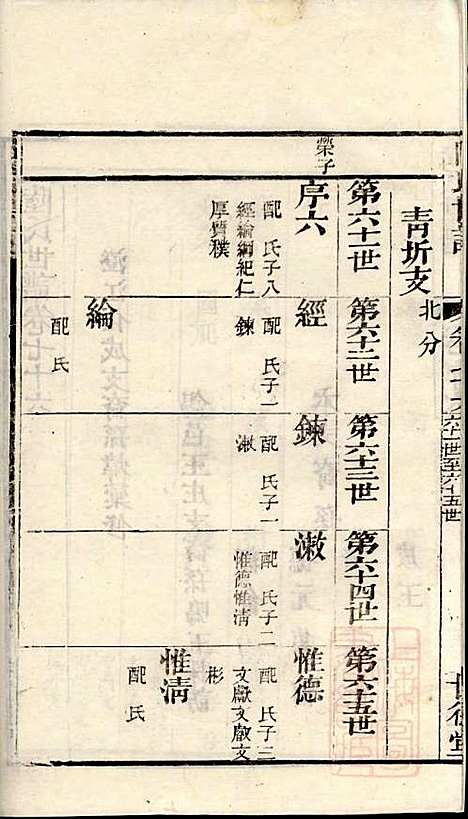 青圻支
北分
第六十一世
第六十二世
第六十三世
第六十四世
第六十五世
榮子
序六
配 氏子八
經綸綱紀仁
厚賢樸
經
配 氏子一
鍊
綸
配 氏
鍊
配 氏子一
漖
漖
配 氏子二
惟德惟清
惟德
配 氏子三
文獻文敵文
彬
惟清
配 氏
六十一世至六十五世